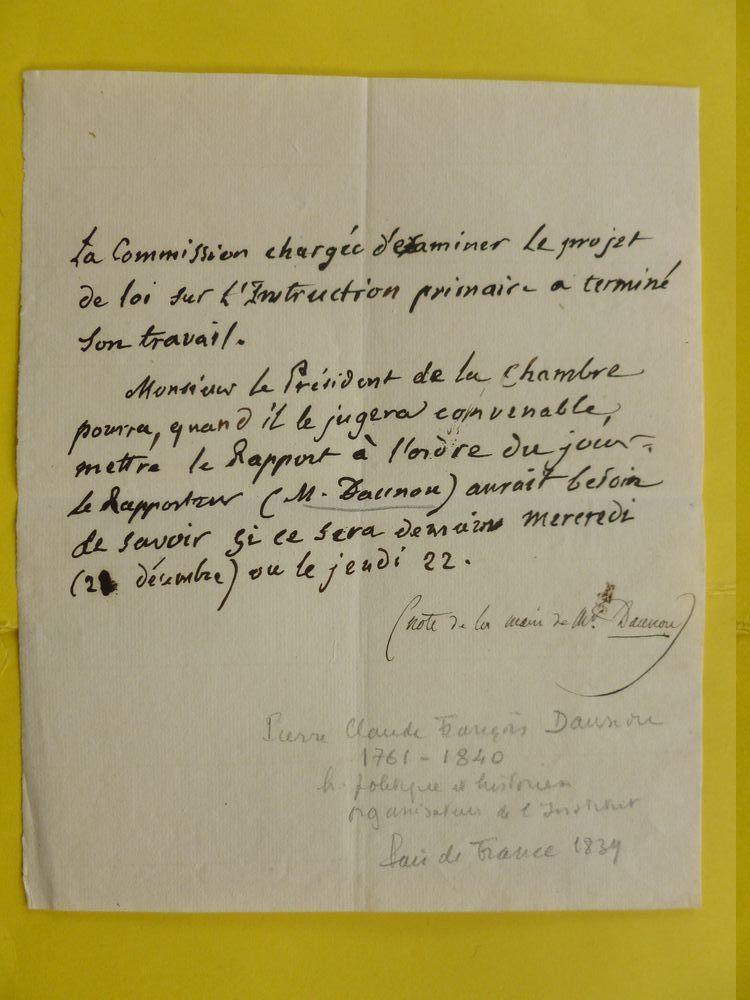 La Commission chargée d'examiner le projet
de loi sur L'Instruction primaire a terminé
son travail.
Monsieur le Président de la Chambre
pourra, quand il le jugera convenable,
mettre le Rapport à l'ordre du jour.
le Rapporteur (M. Daunou) aurait besoin
de savoir si ce sera demain mercredi
(21 décembre) ou le jeudi 22.
(note de la main de Mr. Daunou)
Pierre Claude François Daunou
1761 - 1840
h. politique et historien
organisateur de l'Institut
Pair de France 1839